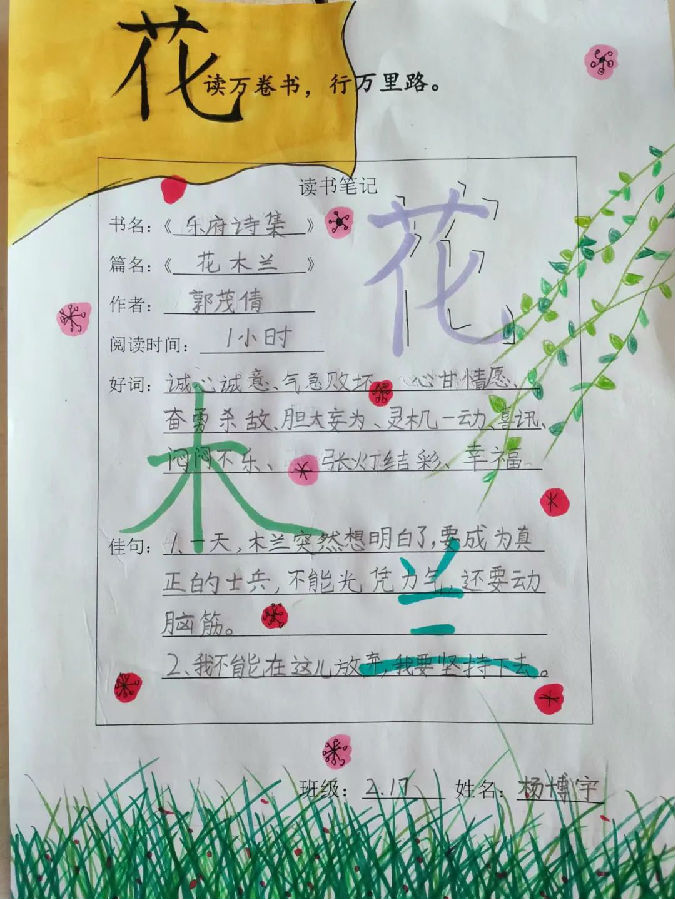 花
读万卷书，行万里路。
读书笔记
书名：《乐府诗集》
篇名：《花木兰》
作者：郭茂倩
阅读时间：1小时
好词：诚心诚意、气急败坏、心甘情愿、
奋勇杀敌、胆大妄为、灵机一动、喜讯、
闷闷不乐、张灯结彩、幸福
佳句：1、一天，木兰突然想明白了，要成为真
正的士兵，不能光凭力气，还要动
脑筋。
2、我不能在这儿放弃，我要坚持下去。
花
木
兰
班级：2.17 姓名：杨博宇